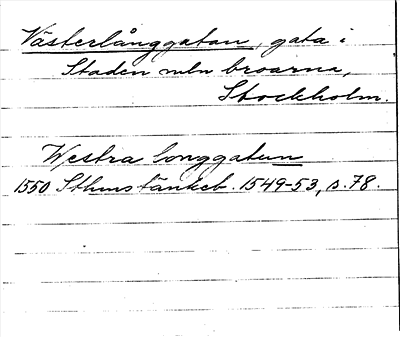 Västerlånggatan, gata i
Staden mln broarna,
Stockholm.
Westra longgatun
1550 Sthms tänkeb. 1549-53, s. 78.